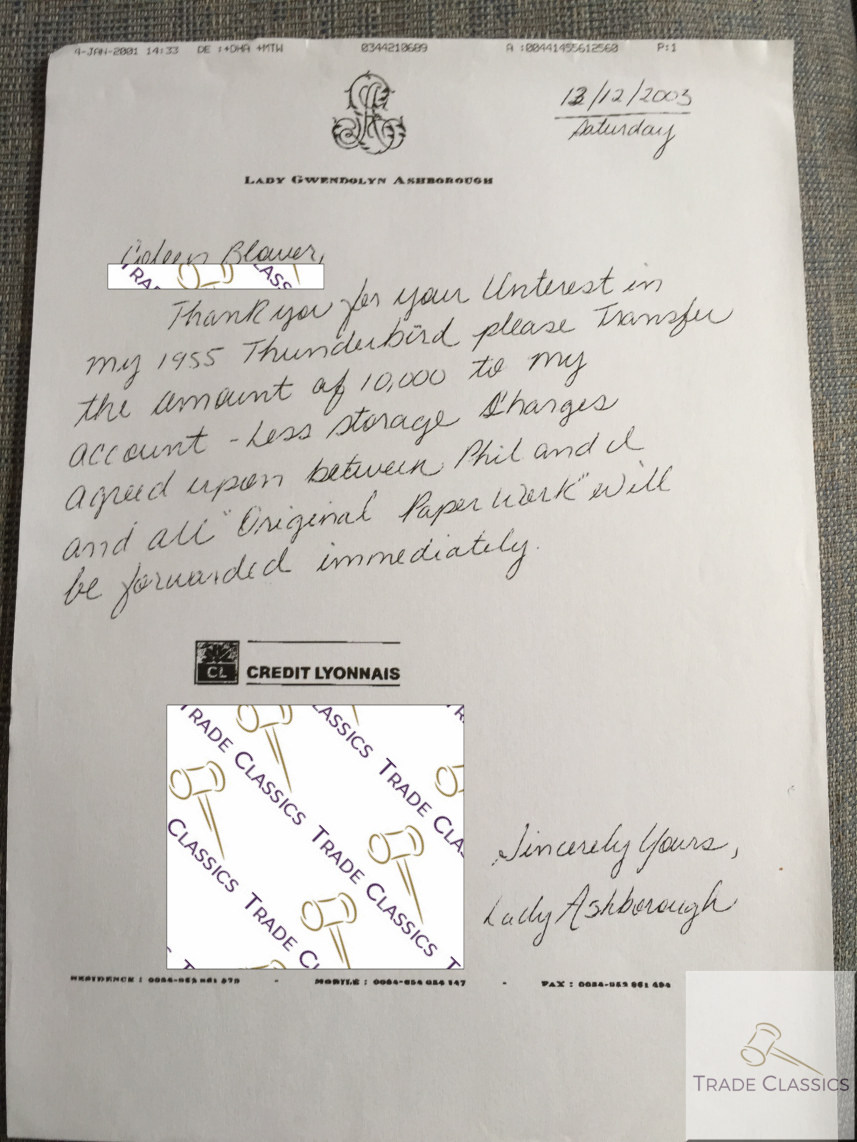 4-JAN-2001 14:33 DE :+DHA +MTW 0344210609 A :00441455612560 P:1
13/12/2003
Saturday
LADY GWENDOLYN ASHBOROUGH
Coleen Blower,
TRA CLASS
Thank you for your Unterest in
my 1955 Thunderbird please Transfer
the amount of 10,000 to my
account - Less storage Charges
agreed upon between Phil and I
and all "Original Paper Work" will
be forwarded immediately.
CL CREDIT LYONNAIS
TRADE CLASSICS TRADE CLASSICS
CLASSICS TRADE CLA
CLASSICS TRADE CL
Sincerely Yours,
Lady Ashborough
RESIDENCE : - MOBILE : - FAX :
TRADE CLASSICS